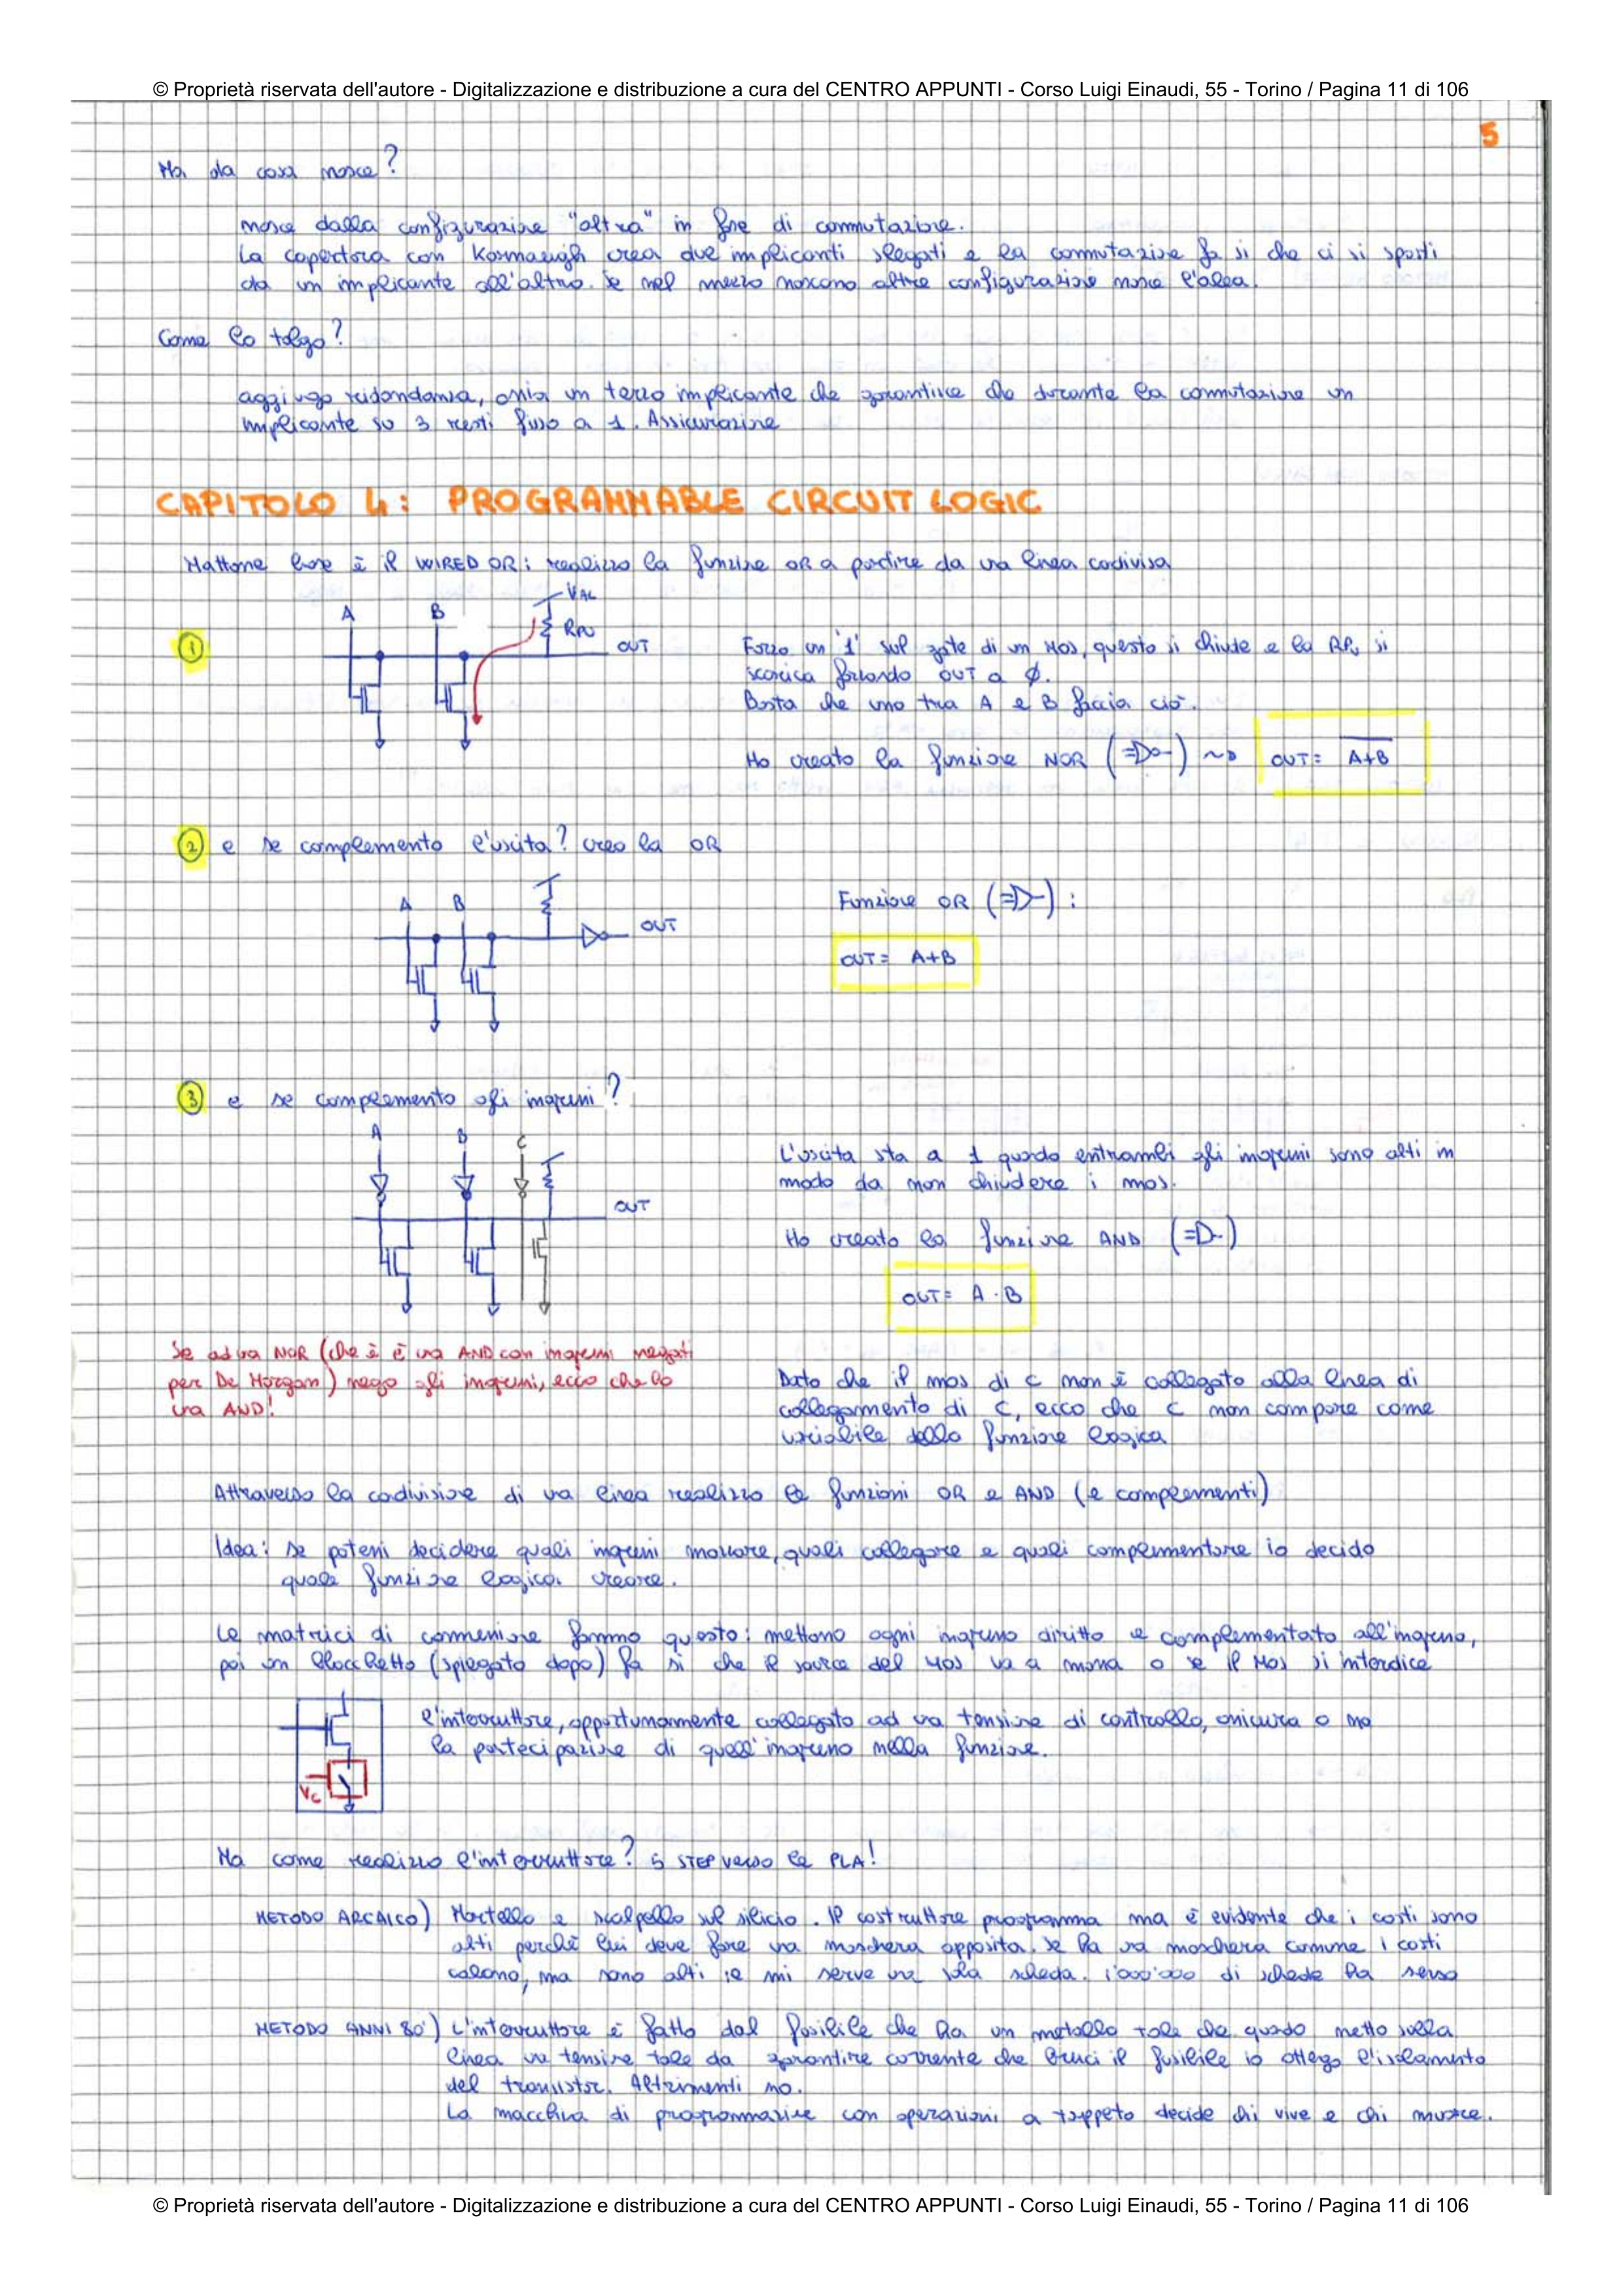 © Proprietà riservata dell'autore - Digitalizzazione e distribuzione a cura del CENTRO APPUNTI - Corso Luigi Einaudi, 55 - Torino / Pagina 11 di 106
5
Ma da cosa nasce?
nasce dalla configurazione "altra" in fase di commutazione.
La copertura con Karnaugh crea due implicanti slegati e la commutazione fa si che ci si sposti
da un implicante all'altro. Se nel mezzo nascono altre configurazioni nasce l'alea.
Come lo tolgo?
aggiungo ridondanza, ossia un terzo implicante che garantisce che durante la commutazione un
implicante su 3 resti fisso a 1. Assicurazione
CAPITOLO 4: PROGRAMMABLE CIRCUIT LOGIC
Mattone base è il WIRED OR: realizzo la funzione OR a partire da una linea condivisa
VAL
A B RPU OUT
1 Forzo un '1' sul gate di un MOS, questo si chiude e la RPU si
scarica forzando OUT a Ø.
Basta che uno tra A e B faccia ciò.
Ho creato la funzione NOR ( ) ~> OUT = \overline{A+B}
2 e se complemento l'uscita? creo la OR
A B OUT
Funzione OR ( ):
OUT = A+B
3 e se complemento gli ingressi?
A B C OUT
L'uscita sta a 1 quando entrambi gli ingressi sono alti in
modo da non chiudere i mos.
Ho creato la funzione AND ( )
OUT = A · B
Se ad una NOR (che è è una AND con ingressi negati
per De Morgan) nego gli ingressi, ecco che ho
una AND!
Dato che il mos di C non è collegato alla linea di
collegamento di C, ecco che C non compare come
variabile della funzione logica
Attraverso la condivisione di una linea realizzo le funzioni OR e AND (e complementi)
Idea: se potessi decidere quali ingressi mollare, quali collegare e quali complementare io decido
quale funzione logica creare.
Le matrici di connessione fanno questo: mettono ogni ingresso diritto e complementato all'ingresso,
poi un blocchetto (spiegato dopo) fa sì che il source del MOS va a massa o se il MOS si interdice
VC
l'interruttore, opportunamente collegato ad una tensione di controllo, assicura o no
la partecipazione di quell'ingresso nella funzione.
Ma come realizzo l'interruttore? 5 STEP verso le PLA!
METODO ARCAICO) Martello e scalpello sul silicio. Il costruttore programma ma è evidente che i costi sono
alti perché lui deve fare una maschera apposita. Se ha una maschera comune i costi
calano, ma sono alti se mi serve una sola scheda. 1'000'000 di schede ha senso
METODO ANNI 80') L'interruttore è fatto dal fusibile che ha un metallo tale che quando metto sulla
linea una tensione tale da garantire corrente che bruci il fusibile io ottengo l'isolamento
del transistor. Altrimenti no.
La macchina di programmazione con operazioni a tappeto decide chi vive e chi muore.
© Proprietà riservata dell'autore - Digitalizzazione e distribuzione a cura del CENTRO APPUNTI - Corso Luigi Einaudi, 55 - Torino / Pagina 11 di 106